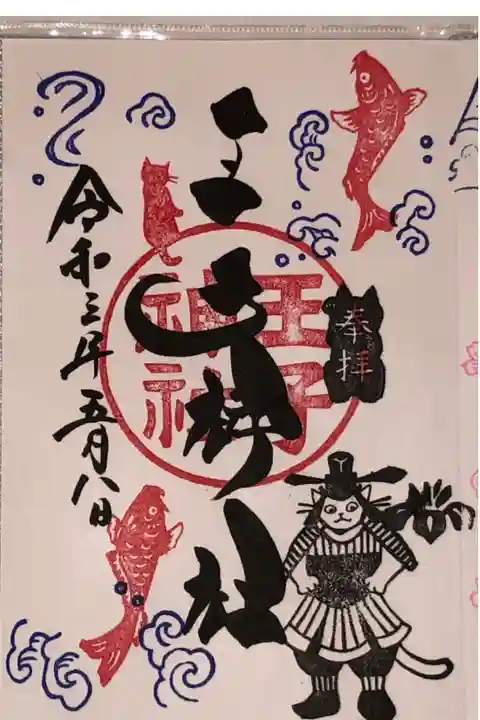 奉拝
王子神社
王子神社
令和三年五月八日